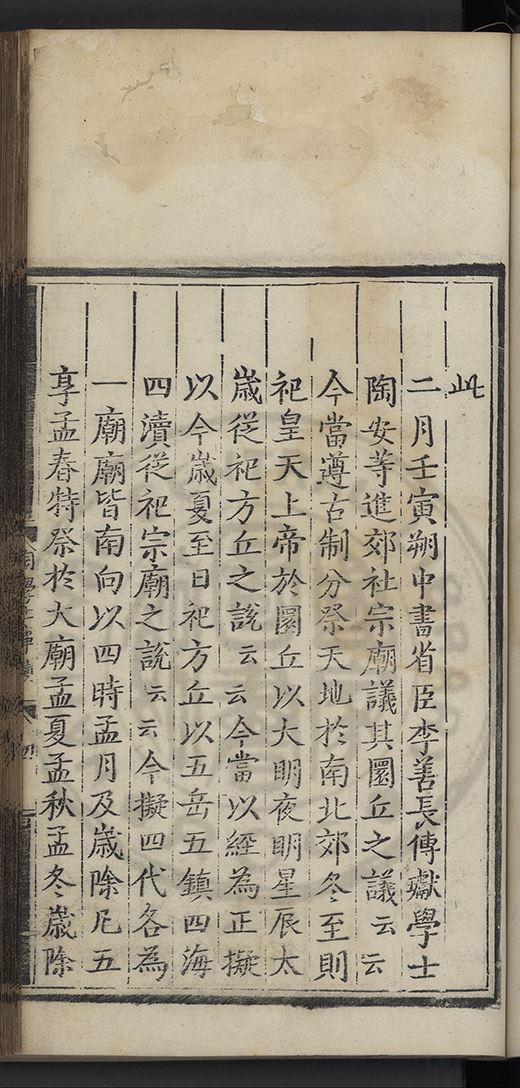 此
二月壬寅朔中書省臣李善長傅瓛學士
陶安等進郊社宗廟議其圜丘之議云云
今當遵古制分祭天地於南北郊冬至則
祀皇天上帝於圜丘以大明夜明星辰太
歲從祀方丘之說云云今當以經為正擬
以今歲夏至日祀方丘以五岳五鎮四海
四瀆從祀宗廟之說云云今擬四代各為
一廟廟皆南向以四時孟月及歲除凡五
享孟春特祭於大廟孟夏孟秋孟冬歲除